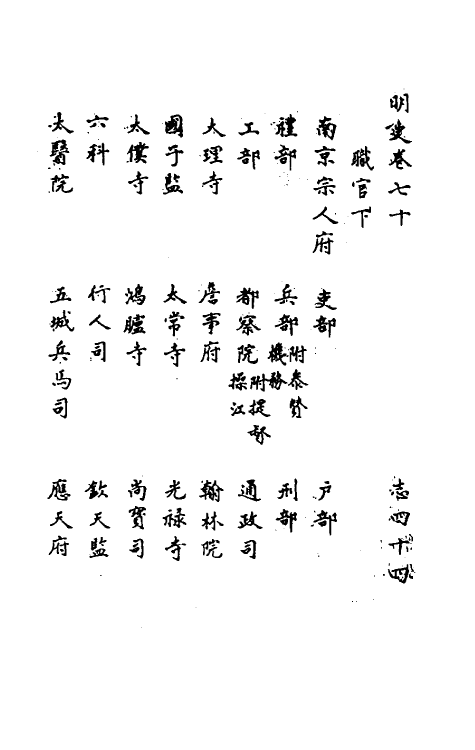 明史卷七十　志四十四
職官下
南京宗人府　吏部　戶部
禮部　兵部附參贊機務　刑部
工部　都察院附提督操江　通政司
大理寺　詹事府　翰林院
國子監　太常寺　光祿寺
太僕寺　鴻臚寺　尚寶司
六科　行人司　欽天監
太醫院　五城兵馬司　應天府